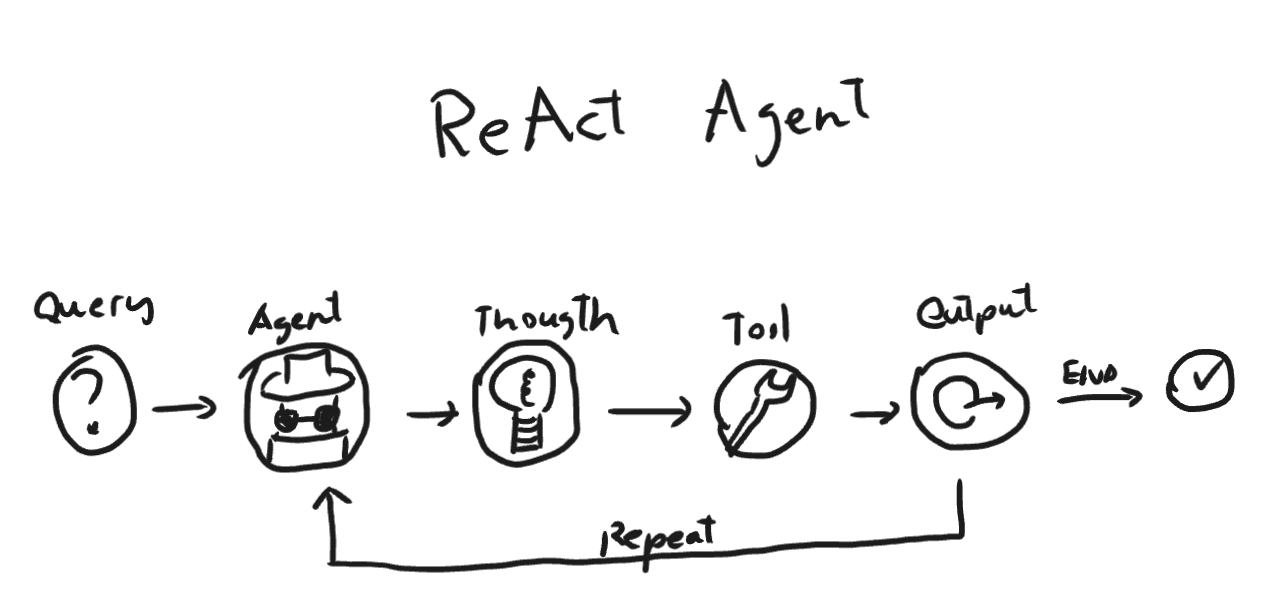 ReAct Agent
Query
Agent
Thougth
Tool
Output
?
END
Repeat